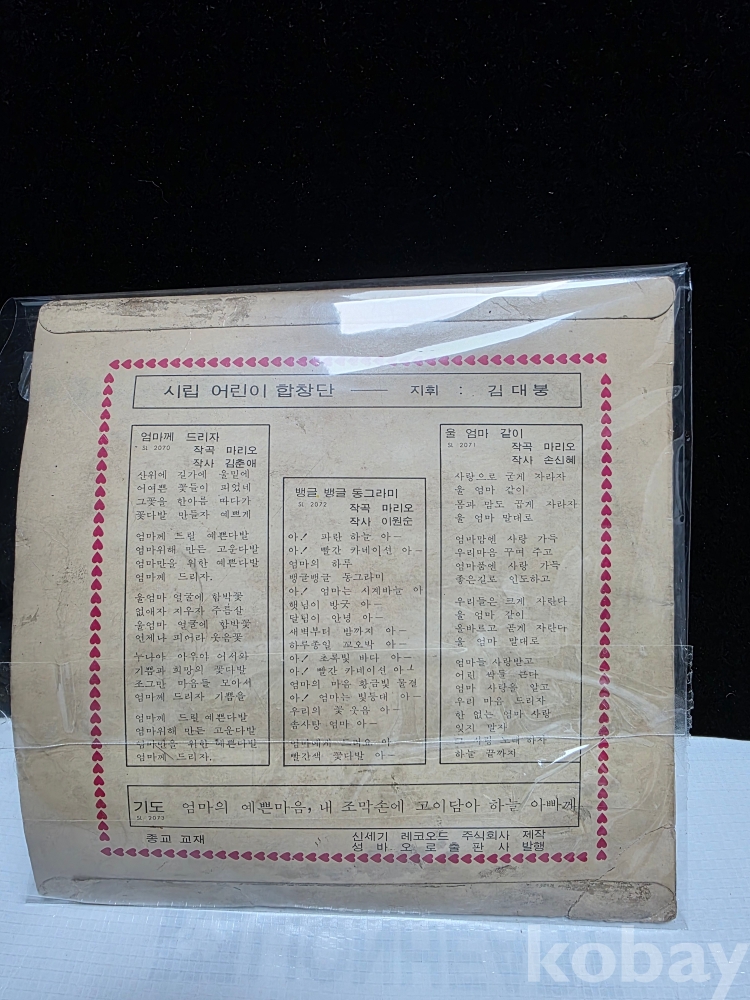 시립 어린이 합창단 —— 지휘 : 김대붕
엄마께 드리자
SL 2070 작곡 마리오
작사 김춘애
산위에 길가에 울밑에
어여쁜 꽃들이 피었네
그꽃을 한아름 따다가
꽃다발 만들자 예쁘게
엄마께 드릴 예쁜다발
엄마위해 만든 고운다발
엄마만을 위한 예쁜다발
엄마께 드리자.
울엄마 얼굴에 함박꽃
없애자 지우자 주름살
울엄마 얼굴에 함박꽃
언제나 피어라 웃음꽃
누나야 아우야 어서와
기쁨과 희망의 꽃다발
조그만 마음들 모아서
엄마께 드리자 기쁨을
엄마께 드릴 예쁜다발
엄마위해 만든 고운다발
엄마만을 위한 예쁜다발
엄마께 드리자.
뱅글 뱅글 동그라미
SL 2072 작곡 마리오
작사 이원순
아! 파란 하늘 아—
아! 빨간 카네이션 아—
엄마의 하루
뱅글뱅글 동그라미
아! 엄마는 시계바늘 아
햇님이 방긋 아—
달님이 안녕 아—
새벽부터 밤까지 아—
하루종일 꼬오박 아—
아! 초록빛 바다 아—
아! 빨간 카네이션 아—
엄마의 마음 황금빛 물결
아! 엄마는 빛등대 아—
우리의 꽃 웃음 아—
솜사탕 엄마 아—
엄마에게 드려요 아—
빨간색 꽃다발 아—
울 엄마 같이
SL 2071 작곡 마리오
작사 손신혜
사랑으로 굳게 자라자
울 엄마 같이
몸과 맘도 곱게 자라자
울 엄마 말대로
엄마맘엔 사랑 가득
우리마음 꾸며 주고
엄마품엔 사랑 가득
좋은길로 인도하고
우리들은 크게 자란다
울 엄마 같이
올바르고 곧게 자란다
울 엄마 말대로
엄마들 사랑받고
어린 싹들 튼다
엄마 사랑을 알고
우리 마음 드리자
한 없는 엄마 사랑
잊지 말자
노래 하자
하늘 끝까지
기도 엄마의 예쁜마음, 내 조막손에 고이담아 하늘 아빠께
SL 2073
종교 교재
신세기 레코오드 주식회사 제작
성바오로출판사 발행
kobay